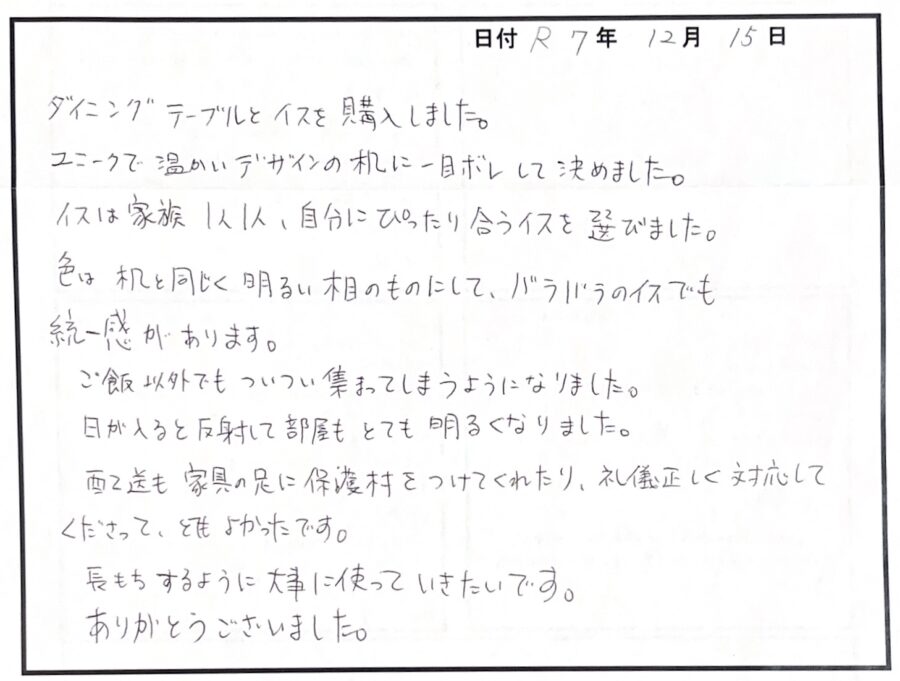 日付 R 7年 12月 15日
ダイニングテーブルとイスを購入しました。
ユニークで温かいデザインの机に一目ボレして決めました。
イスは家族1人1人、自分にぴったり合うイスを選びました。
色は机と同じく明るい相のものにして、バラバラのイスでも
統一感があります。
ご飯以外でもついつい集まってしまうようになりました。
日が入ると反射して部屋もとても明るくなりました。
配送も家具の足に保護材をつけてくれたり、礼儀正しく対応して
くださって、とてもよかったです。
長もちするように大事に使っていきたいです。
ありがとうございました。